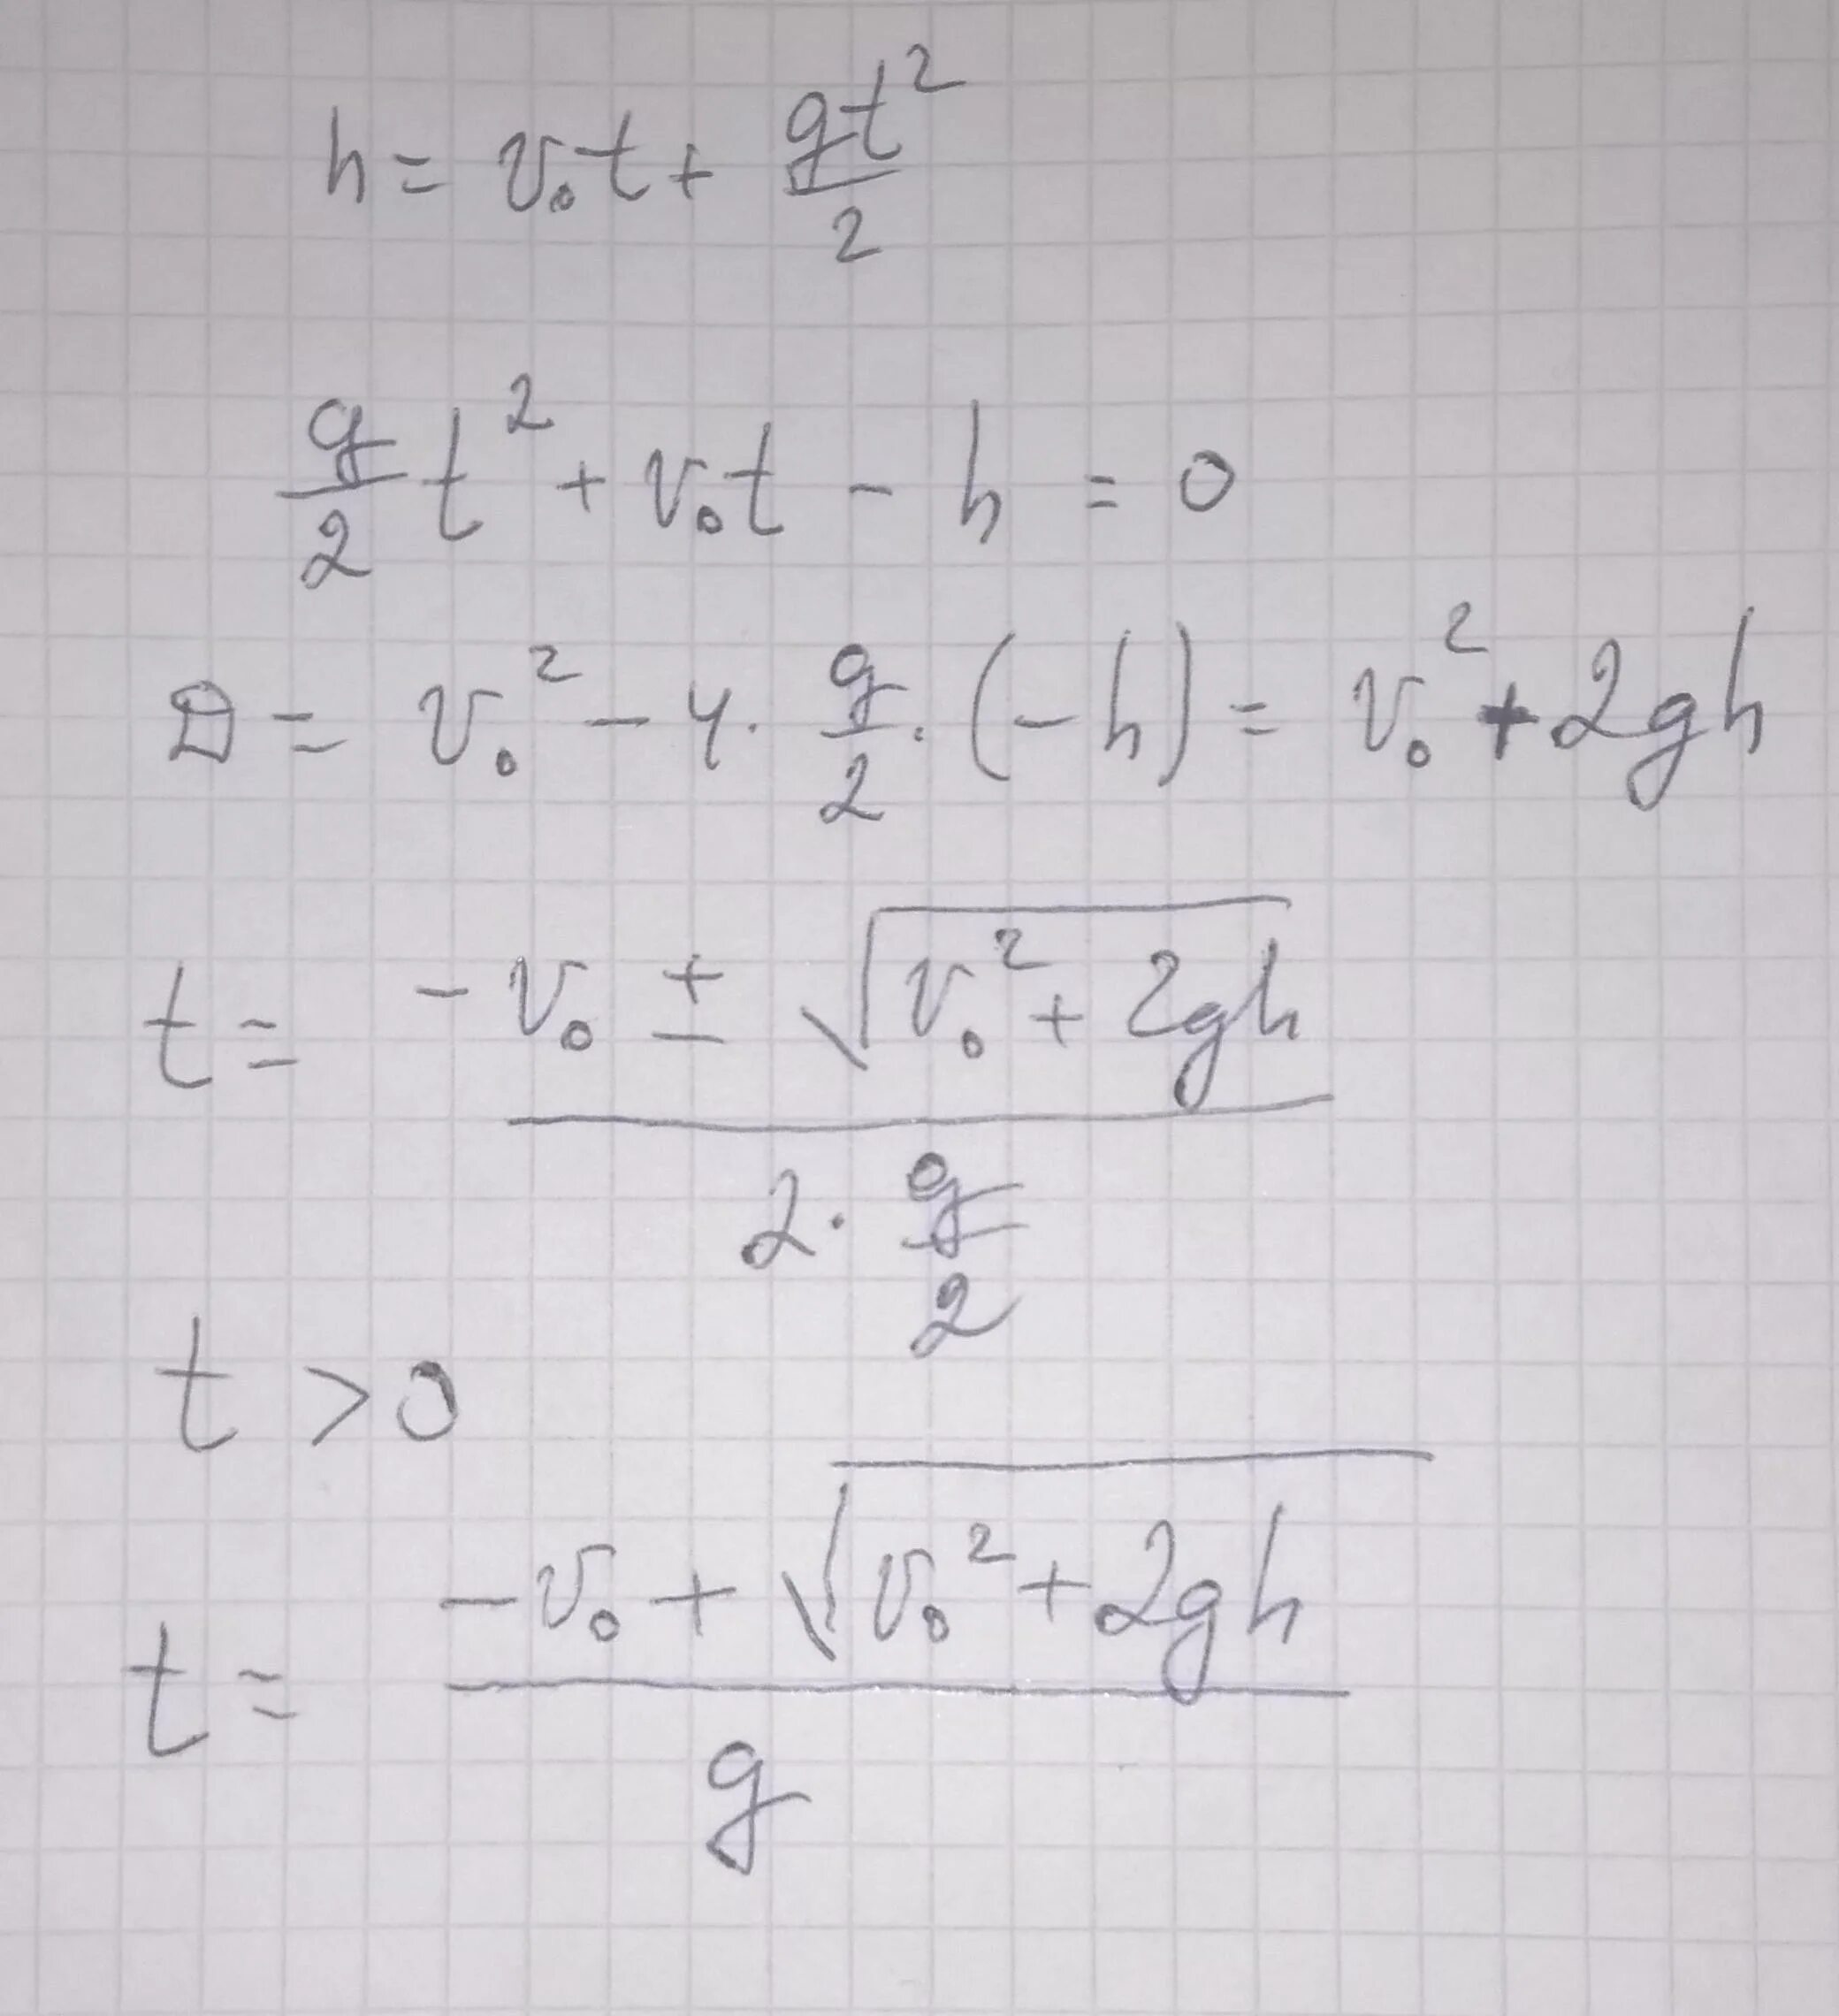 h = v₀t + gt²/2
g/2 t² + v₀t - h = 0
D = v₀² - 4 · g/2 · (-h) = v₀² + 2gh
t = (-v₀ ± √(v₀² + 2gh)) / (2 · g/2)
t > 0
t = (-v₀ + √(v₀² + 2gh)) / g